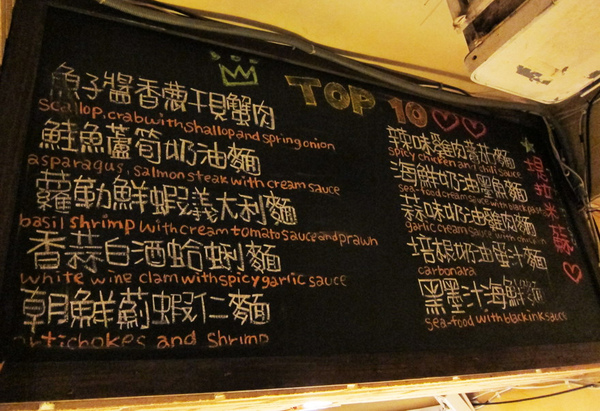 TOP 10
魚子醬香蔥干貝蟹肉
scallop, crab with shallop and spring onion
鮭魚蘆筍奶油麵
asparagus, salmon steak with cream sauce
蘿勒鮮蝦義大利麵
basil shrimp with cream tomato sauce and prawn
香蒜白酒蛤蜊麵
white wine clam with spicy garlic sauce
朝鮮薊蝦仁麵
artichokes and shrimp
辣味雞肉
spicy chicken and chill sauce
海鮮奶油墨魚麵
sea-food cream sauce with
蒜味奶油雞肉麵
garlic cream sauce with chicken
培根奶油蛋汁麵
carbonara
黑墨汁海鮮麵
sea-food with black ink sauce
提拉米蘇